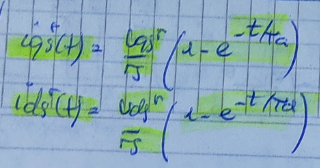 iqs^r(t) = Uqs^r/rs (1 - e^-t/τa)
ids^r(t) = Uds^r/rs (1 - e^-t/τd)